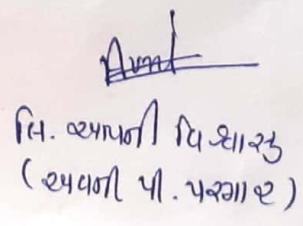 લિ. આપની વિશ્વાસુ
(અવની પી. પરમાર)